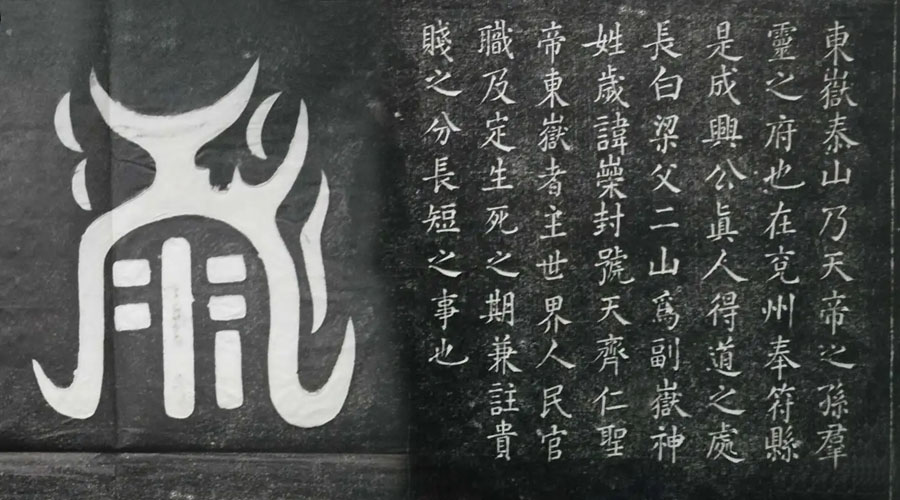 東嶽泰山乃天帝之孫羣
靈之府也在兗州奉符縣
是成興公眞人得道之處
長白梁父二山爲副嶽神
姓歲諱崇封號天齊仁聖
帝東嶽者主世界人民官
職及定生死之期兼註貴
賤之分長短之事也